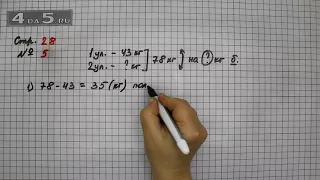 4DA5.RU
Стр. 28
№ 5
1 ул. – 43 кг
2 ул. – ? кг
78 кг
на ? кг б.
1) 78 – 43 = 35 (кг)